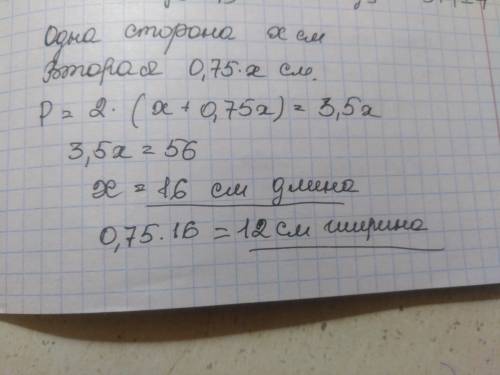 Одна сторона x см
Вторая 0,75·x см.
P = 2·(x + 0,75x) = 3,5x
3,5x = 56
x = 16 см длина
0,75·16 = 12 см ширина